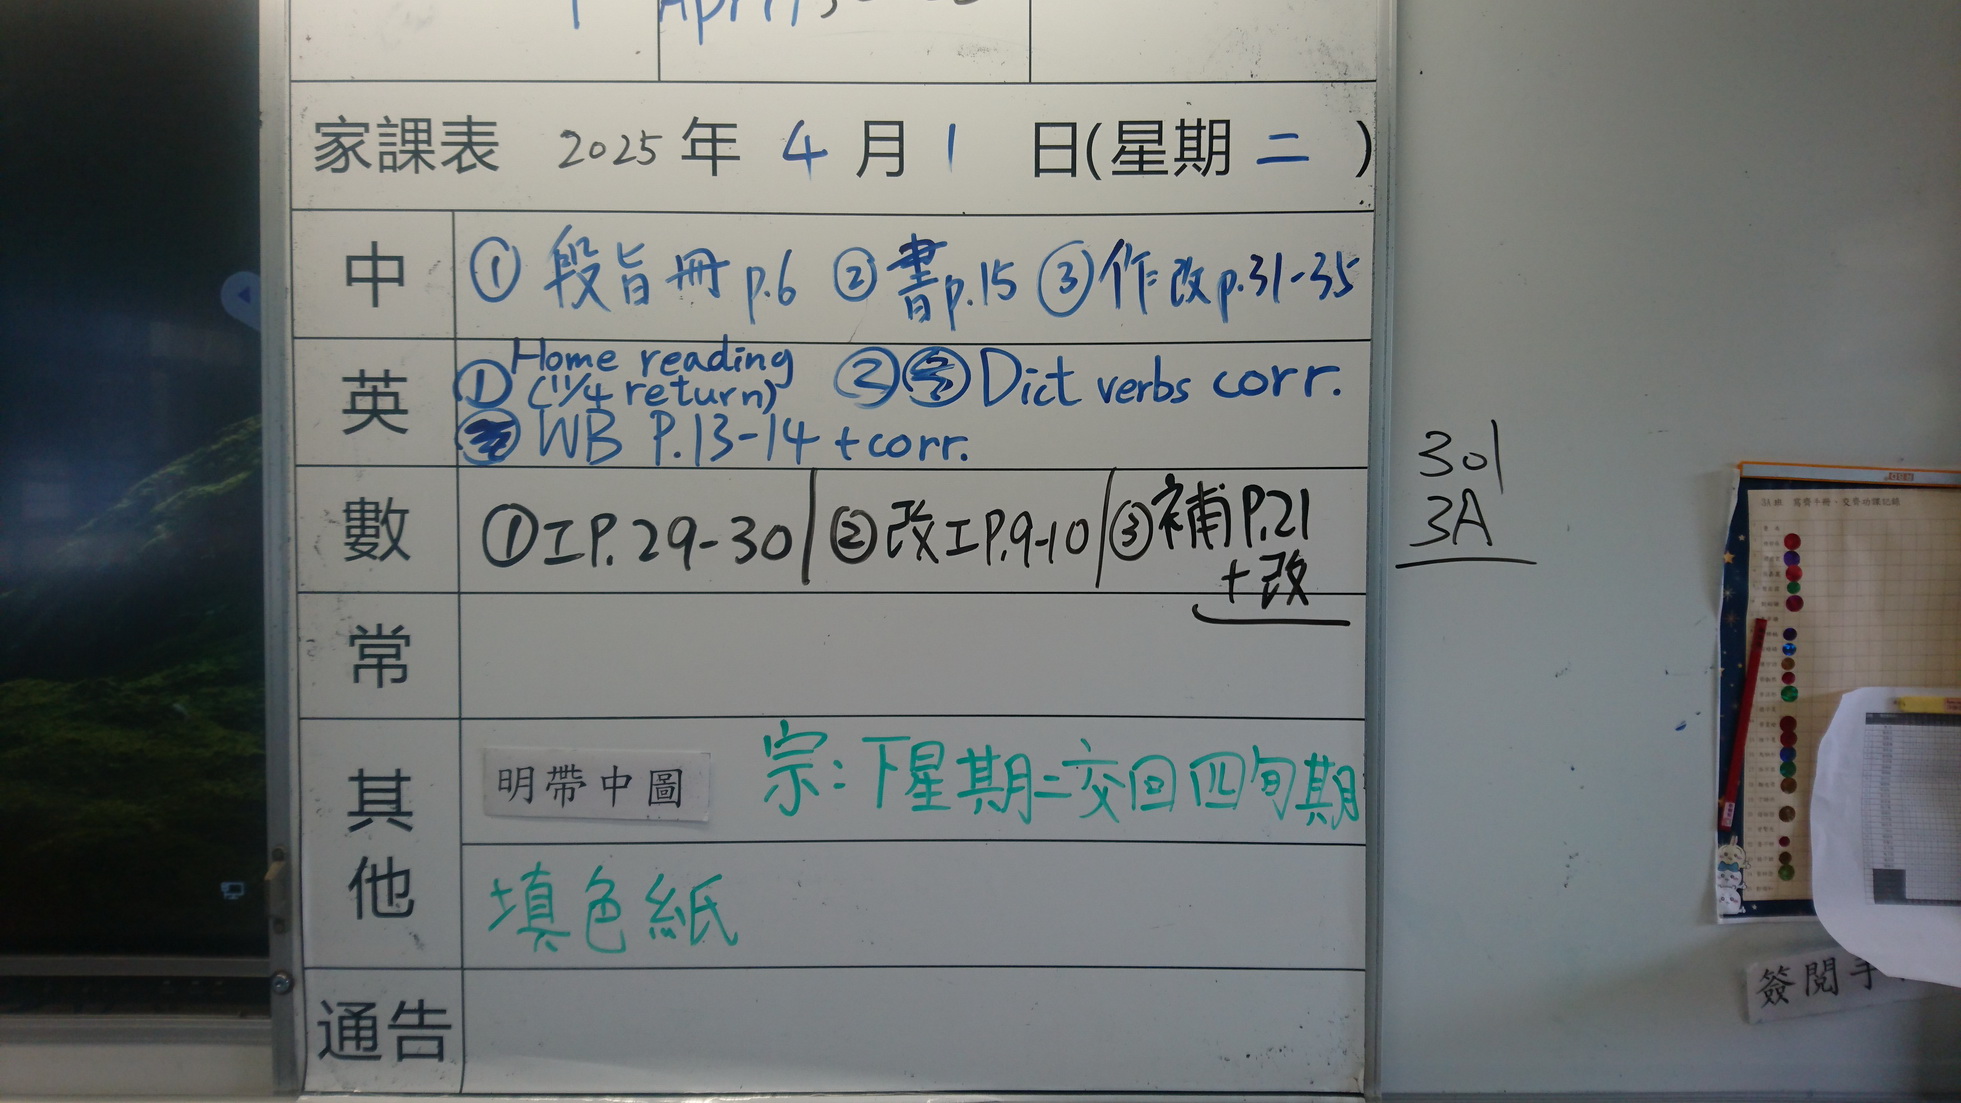 家課表 2025 年 4 月 1 日(星期 二 )
中 ① 段旨冊 p.6 ② 書 p.15 ③ 作改 p.31-35
英 ① Home reading (11/4 return) ② Dict verbs corr.
WB P.13-14 + corr.
數 ① 工P.29-30 ② 改工P.9-10 ③ 補P.21
+改
常
其他 明帶中圖 宗：下星期二交回四旬期
填色紙
通告
301
3A
簽閱手